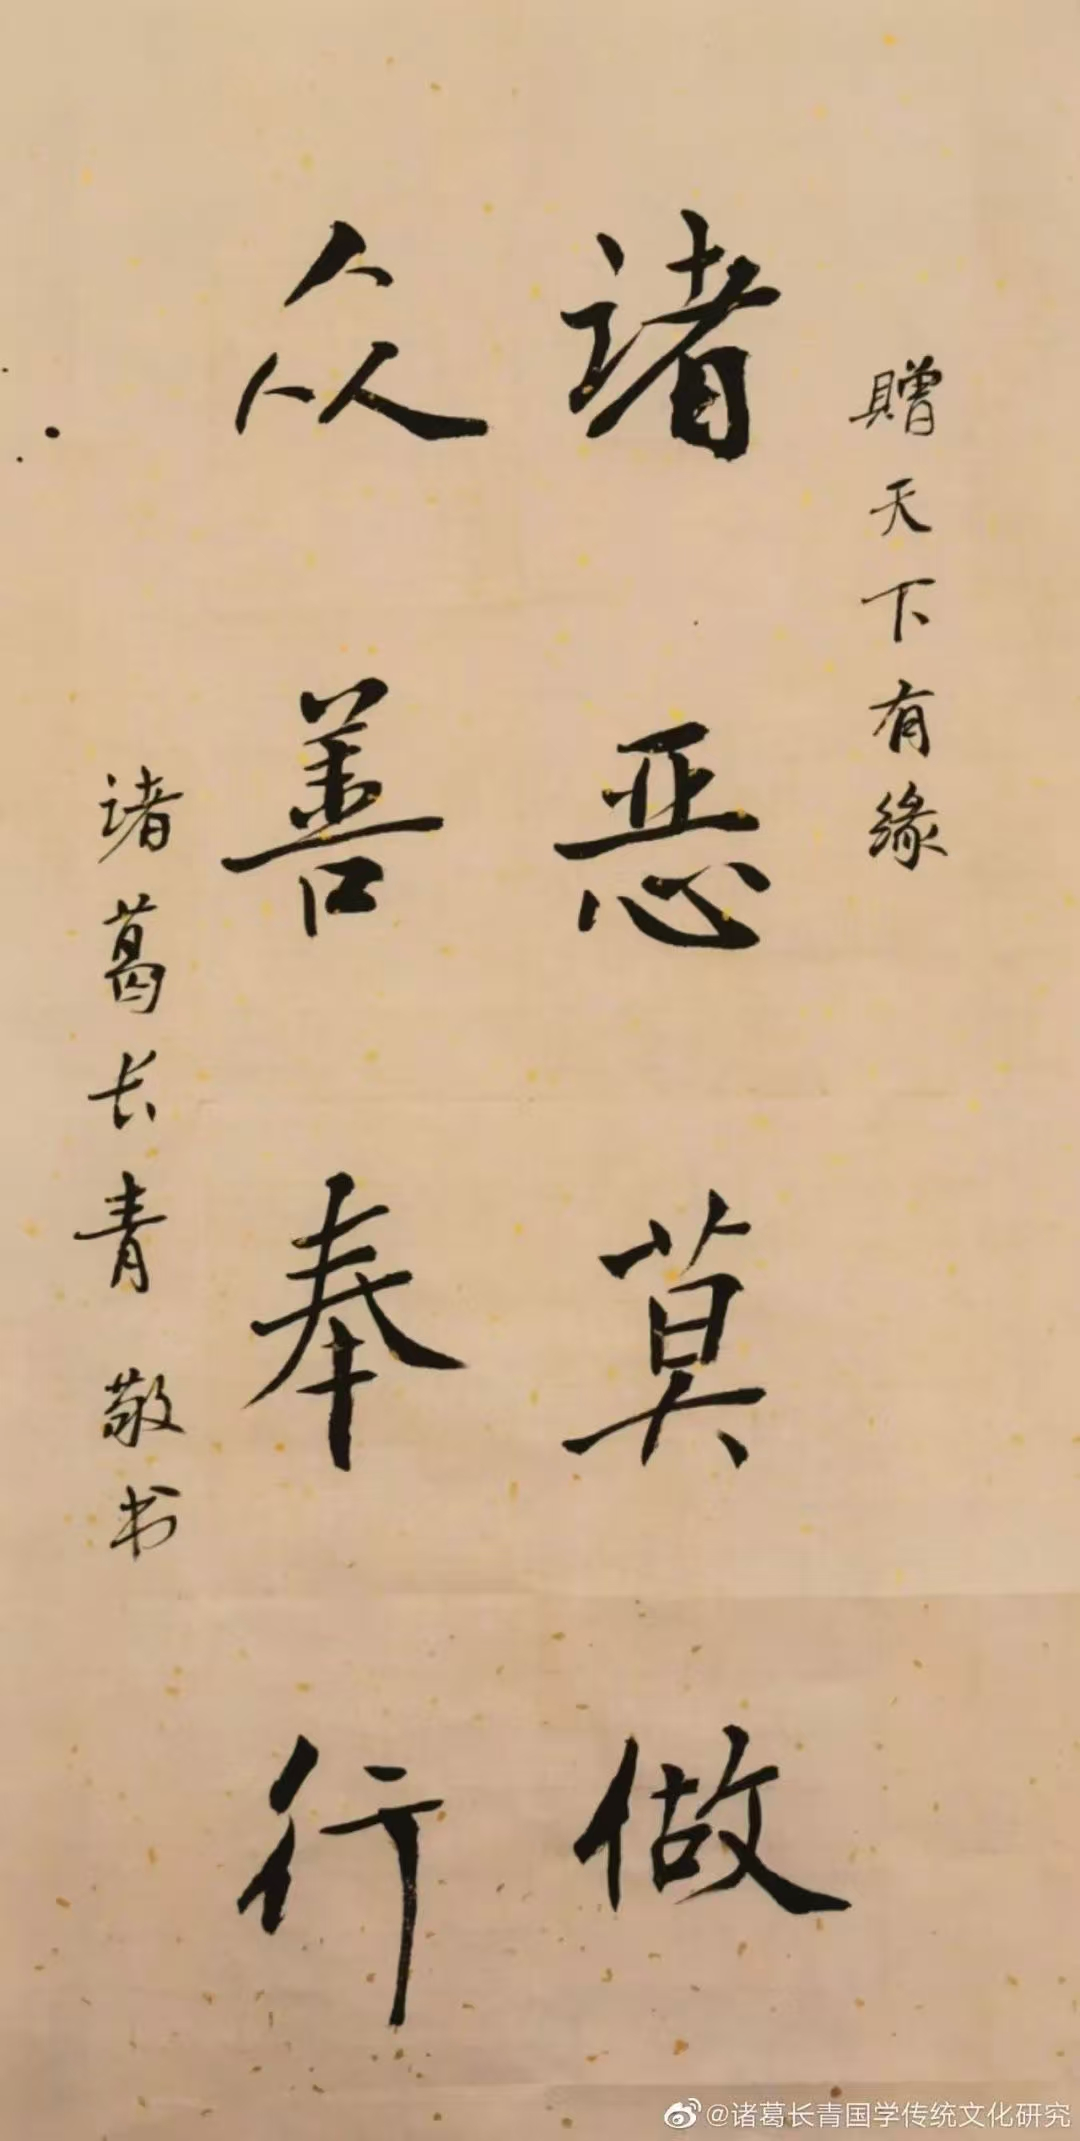 赠天下有缘
诸恶莫做
众善奉行
诸葛长青敬书
@诸葛长青国学传统文化研究